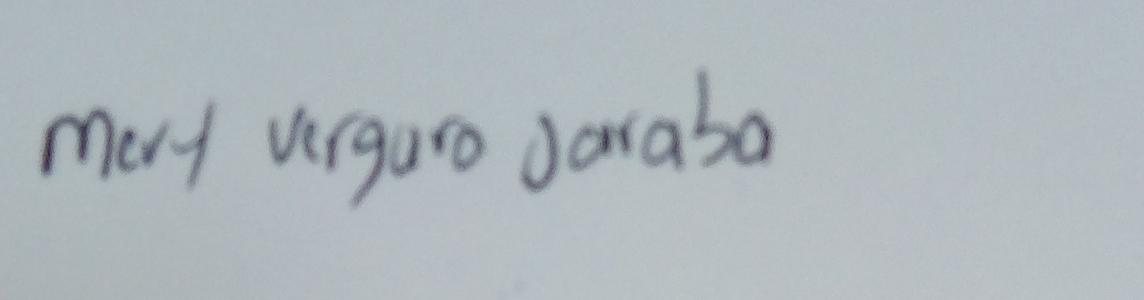 Mery verguro Jaraba